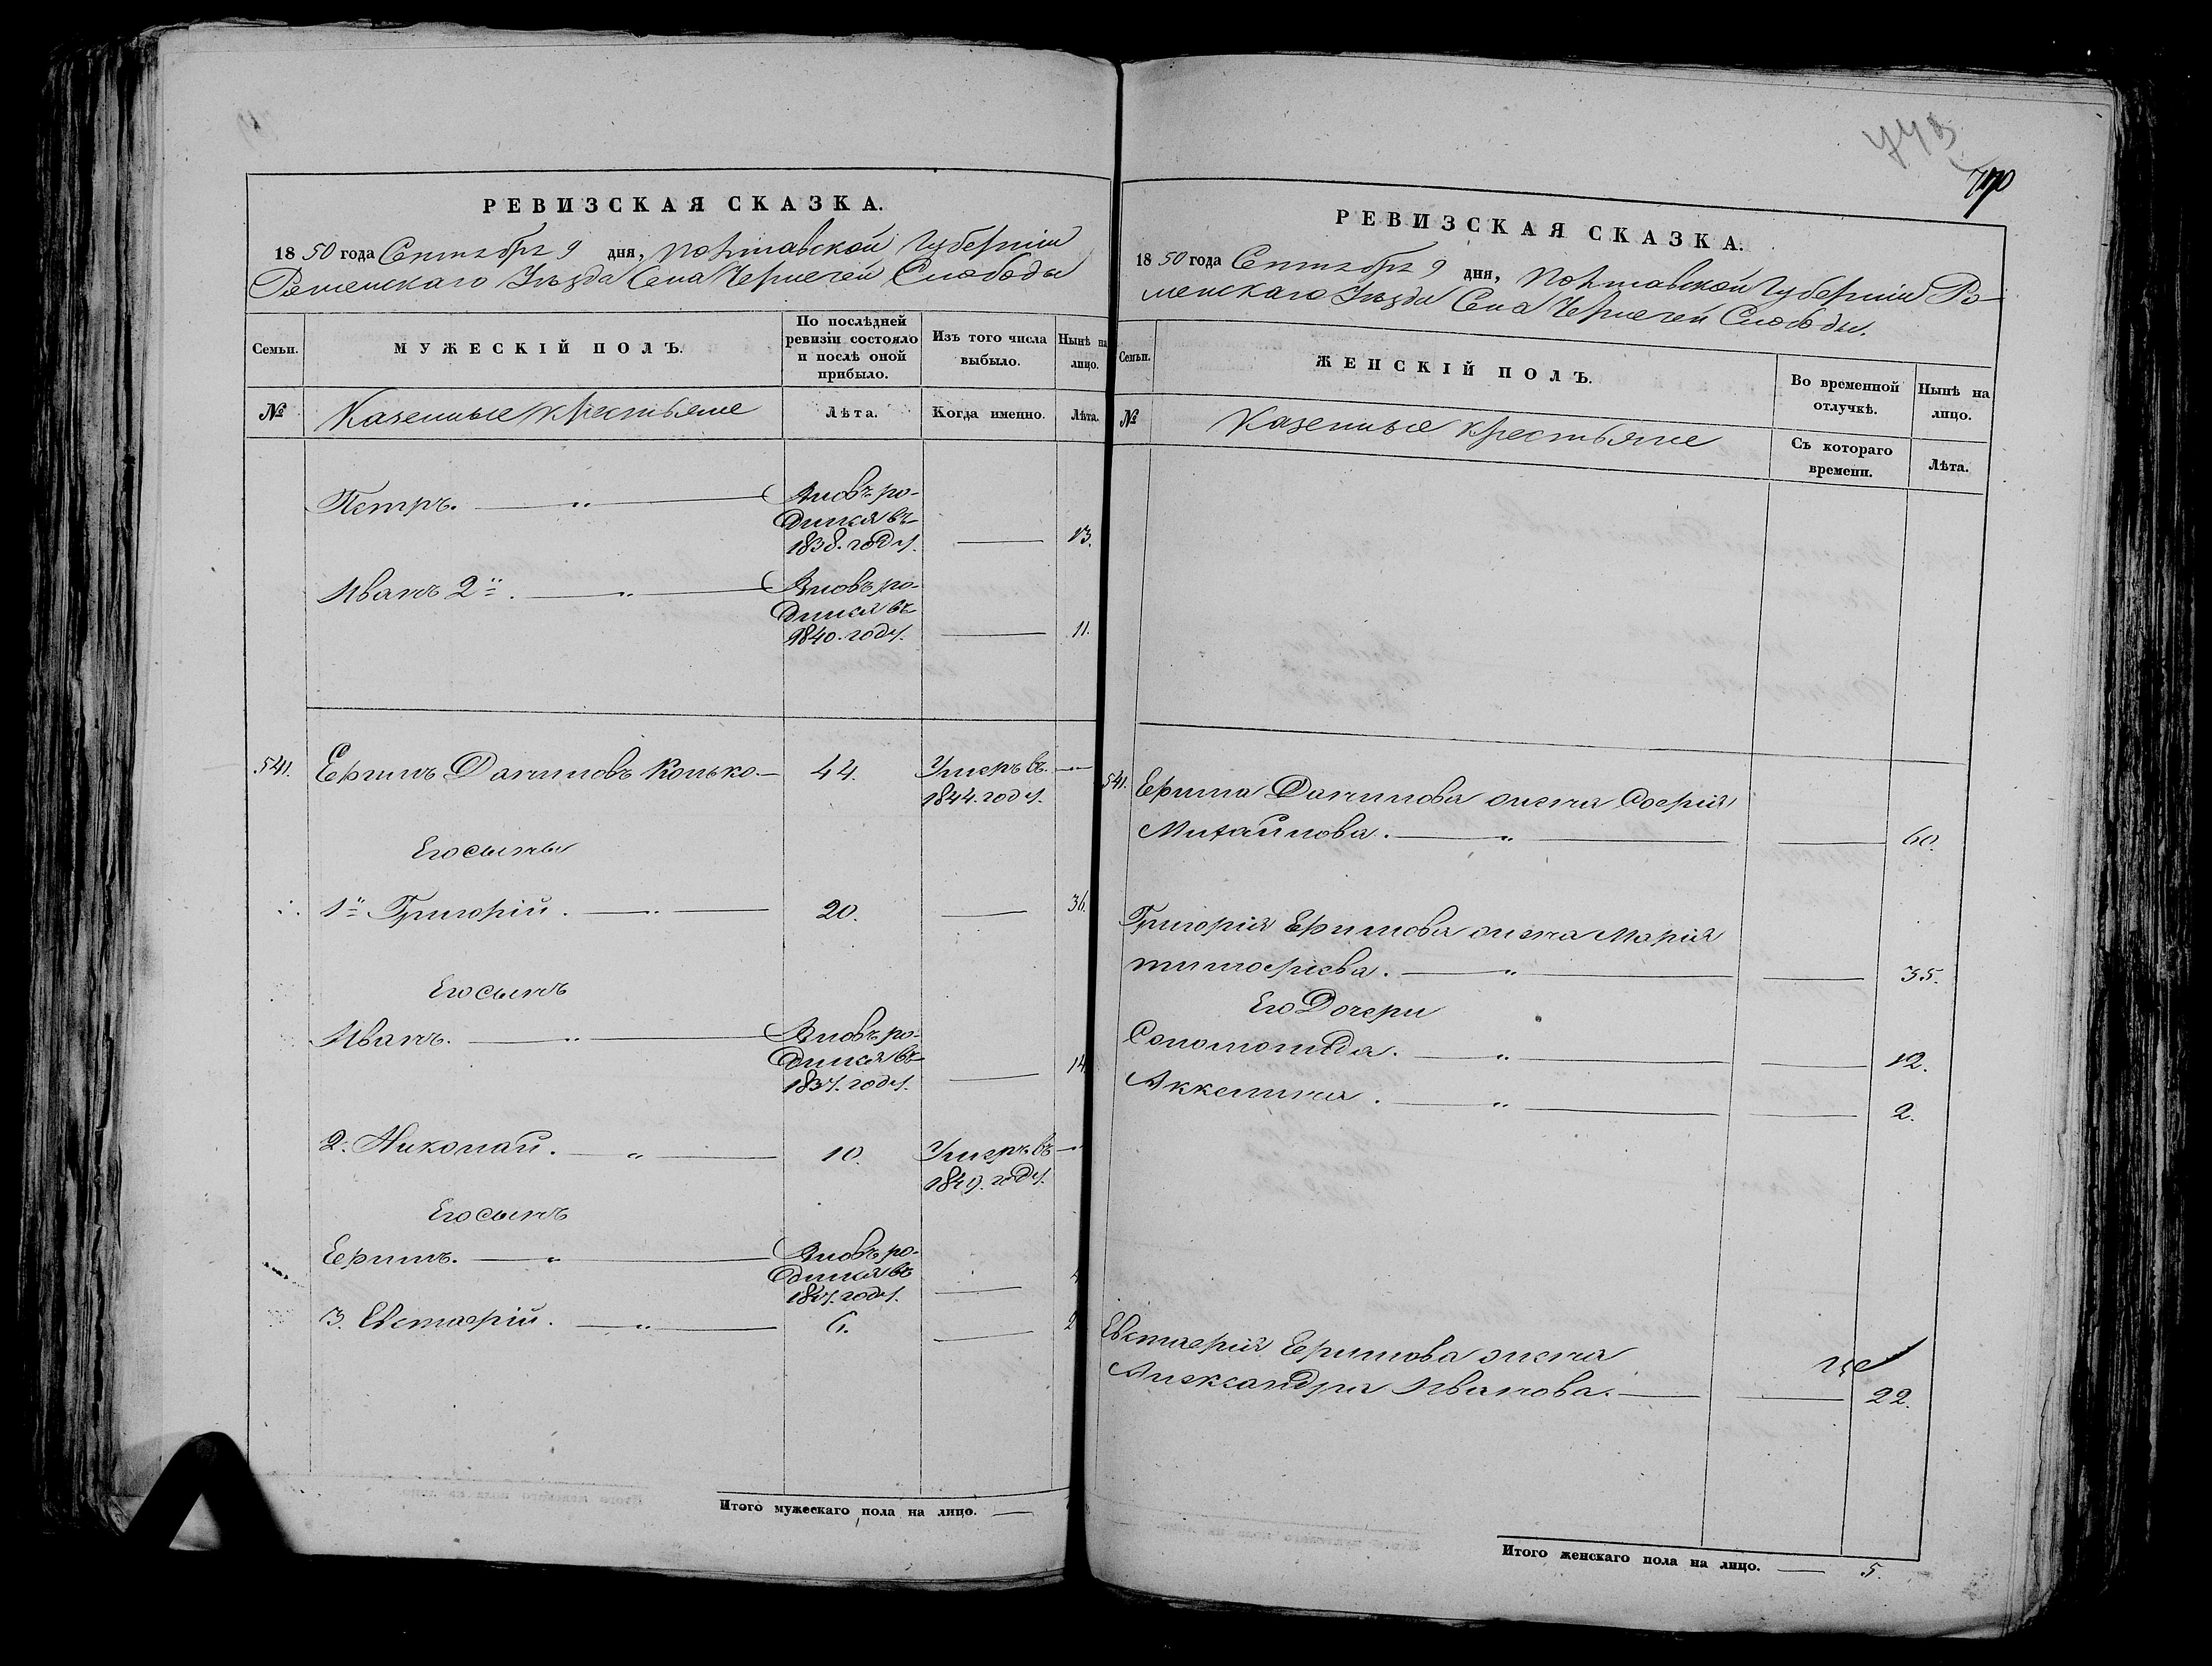 РЕВИЗСКАЯ СКАЗКА.
1850 года Сентября 9 дня, Полтавской Губернiи
Роменскаго Уѣзда Села Чернечей Слободы
Семьи.
МУЖЕСКІЙ ПОЛЪ.
По послѣдней ревизіи состояло и послѣ оной прибыло.
Изъ того числа выбыло.
Нынѣ на лицо.
№
Казенные крестьяне
Лѣта.
Когда именно.
Лѣта.
Петръ. — Вновь ро-
дился въ
1838. году. — 13.
Иванъ 2й. — Вновь ро-
дился въ
1840. году. — 11.
541. Ефимъ Даниловъ Конько — 44. Умеръ въ —
1844. году.
Его сыны
1й Григорій. — 20. — 36.
Его сынъ
Иванъ. — Вновь ро-
дился въ
1837. году. — 14
2. Николай. — 10. Умеръ въ —
1849. году.
Его сынъ
Ефимъ. — Вновь ро-
дился въ
1847. году. — 4
3. Евстафій. — 6. — 2
Итого мужескаго пола на лицо. —
443
РЕВИЗСКАЯ СКАЗКА.
1850 года Сентября 9 дня, Полтавской Губерніи Ро-
менскаго Уѣзда Села Чернечей Слободы.
Семьи.
ЖЕНСКІЙ ПОЛЪ.
Во временной отлучкѣ.
Нынѣ на лицо.
№
Казенные крестьяне
Съ котораго времени.
Лѣта.
541. Ефима Данилова жена Софія
Михайлова. — 60.
Григорія Ефимова жена Марія
Тимофѣева. — 35.
Его Дочери
Соломонида. — 12.
Аккелина. — 2.
Евстафія Ефимова жена
Александра Иванова. — 22.
Итого женскаго пола на лицо. — 5.